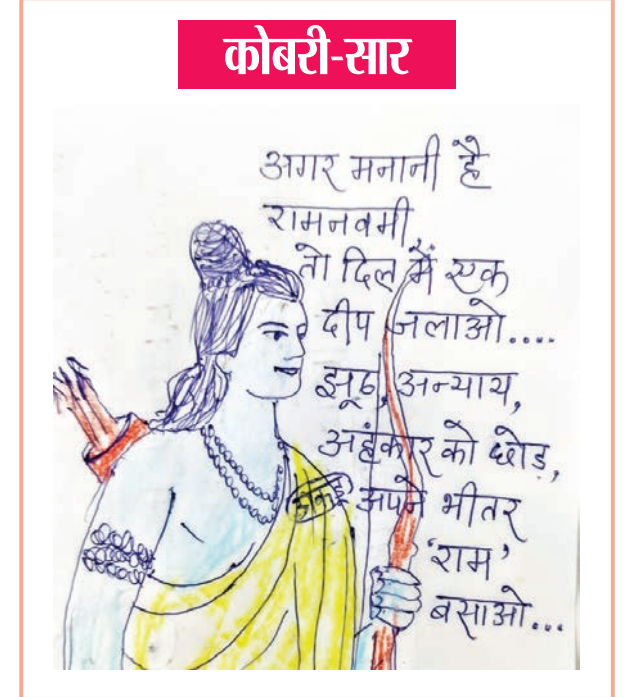 कोबरी-सार
अगर मनानी है
रामनवमी
तो दिल में एक
दीप जलाओ....
झूठ, अन्याय,
अहंकार को छोड़,
अपने भीतर
'राम'
बसाओ...